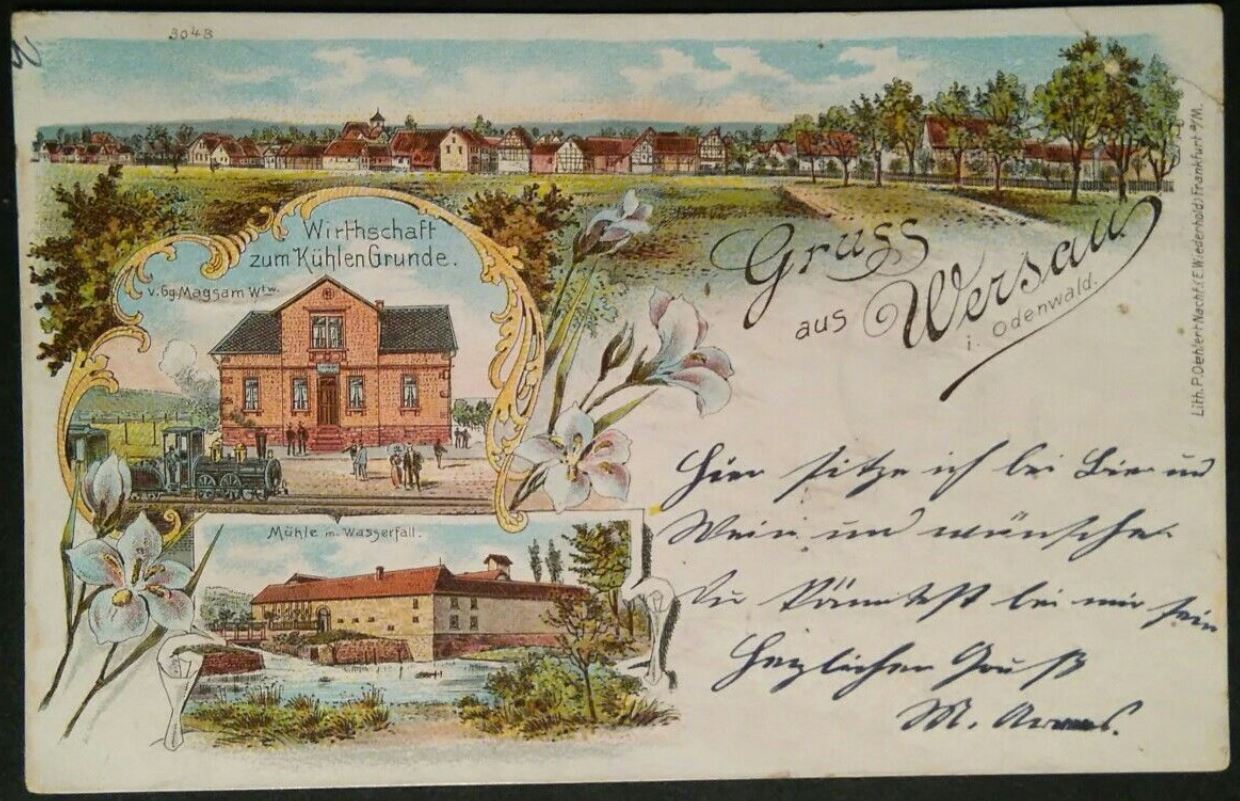 3048
Wirthschaft
zum Kühlen Grunde.
v. Gg. Magsam Wtw.
Gruss
aus Wersau
i. Odenwald.
Lith. P. Oehlert Nachf. (E. Wiederhold) Frankfurt a/M.
Mühle m. Wasserfall.
Hier sitze ich bei Bier und
Wein und wünsche
Du könntest bei mir sein
Herzlichen Gruß
M.